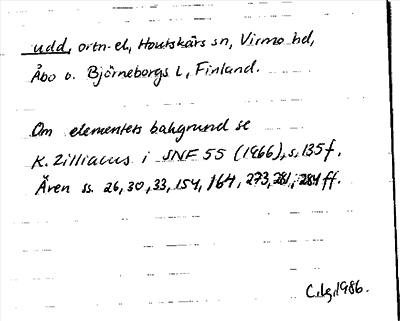 udd, ortn.-el, Houtskärs sn, Virmo hd,
Åbo o. Björneborgs l, Finland.
Om elementets bakgrund se
K. Zilliacus i SNF 55 (1966), s. 135 f.
Även ss. 26, 30, 33, 154, 164, 273, 281, 284 ff.
1986.